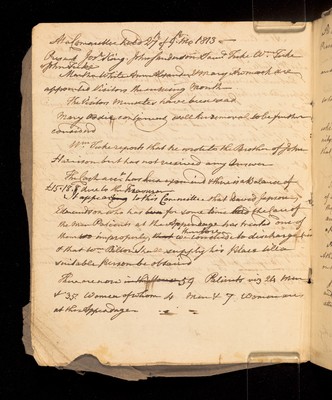 At a Committee held 27 of 9th Mo 1813 —
Present Jos. King, John Sanderson, Saml. Tuke, Wm. Tuke
& John Tuke
Martha White Ann Alexander & Mary are
appointed Visitors the ensuing Month
The Visitors Minutes have been read
Mary continued until her removal to be further
considered
Wm. Tuke reports that he wrote to the Brother of John
Harrison but has not received any Answer
The Cash acct. has been examined & there is a Balance of
due to the Treasurer
It appearing to this Committee that David
who has been for some time the care of
the Men Patients at the Appendage has treated one of
them improperly, we conclude to discharge him
& that Wm. shall supply his place till a
suitable person be obtained
There are now in the House 59 Patients viz 24 Men
& 35 Women of whom 4 Men & 7 Women are
at the Appendage